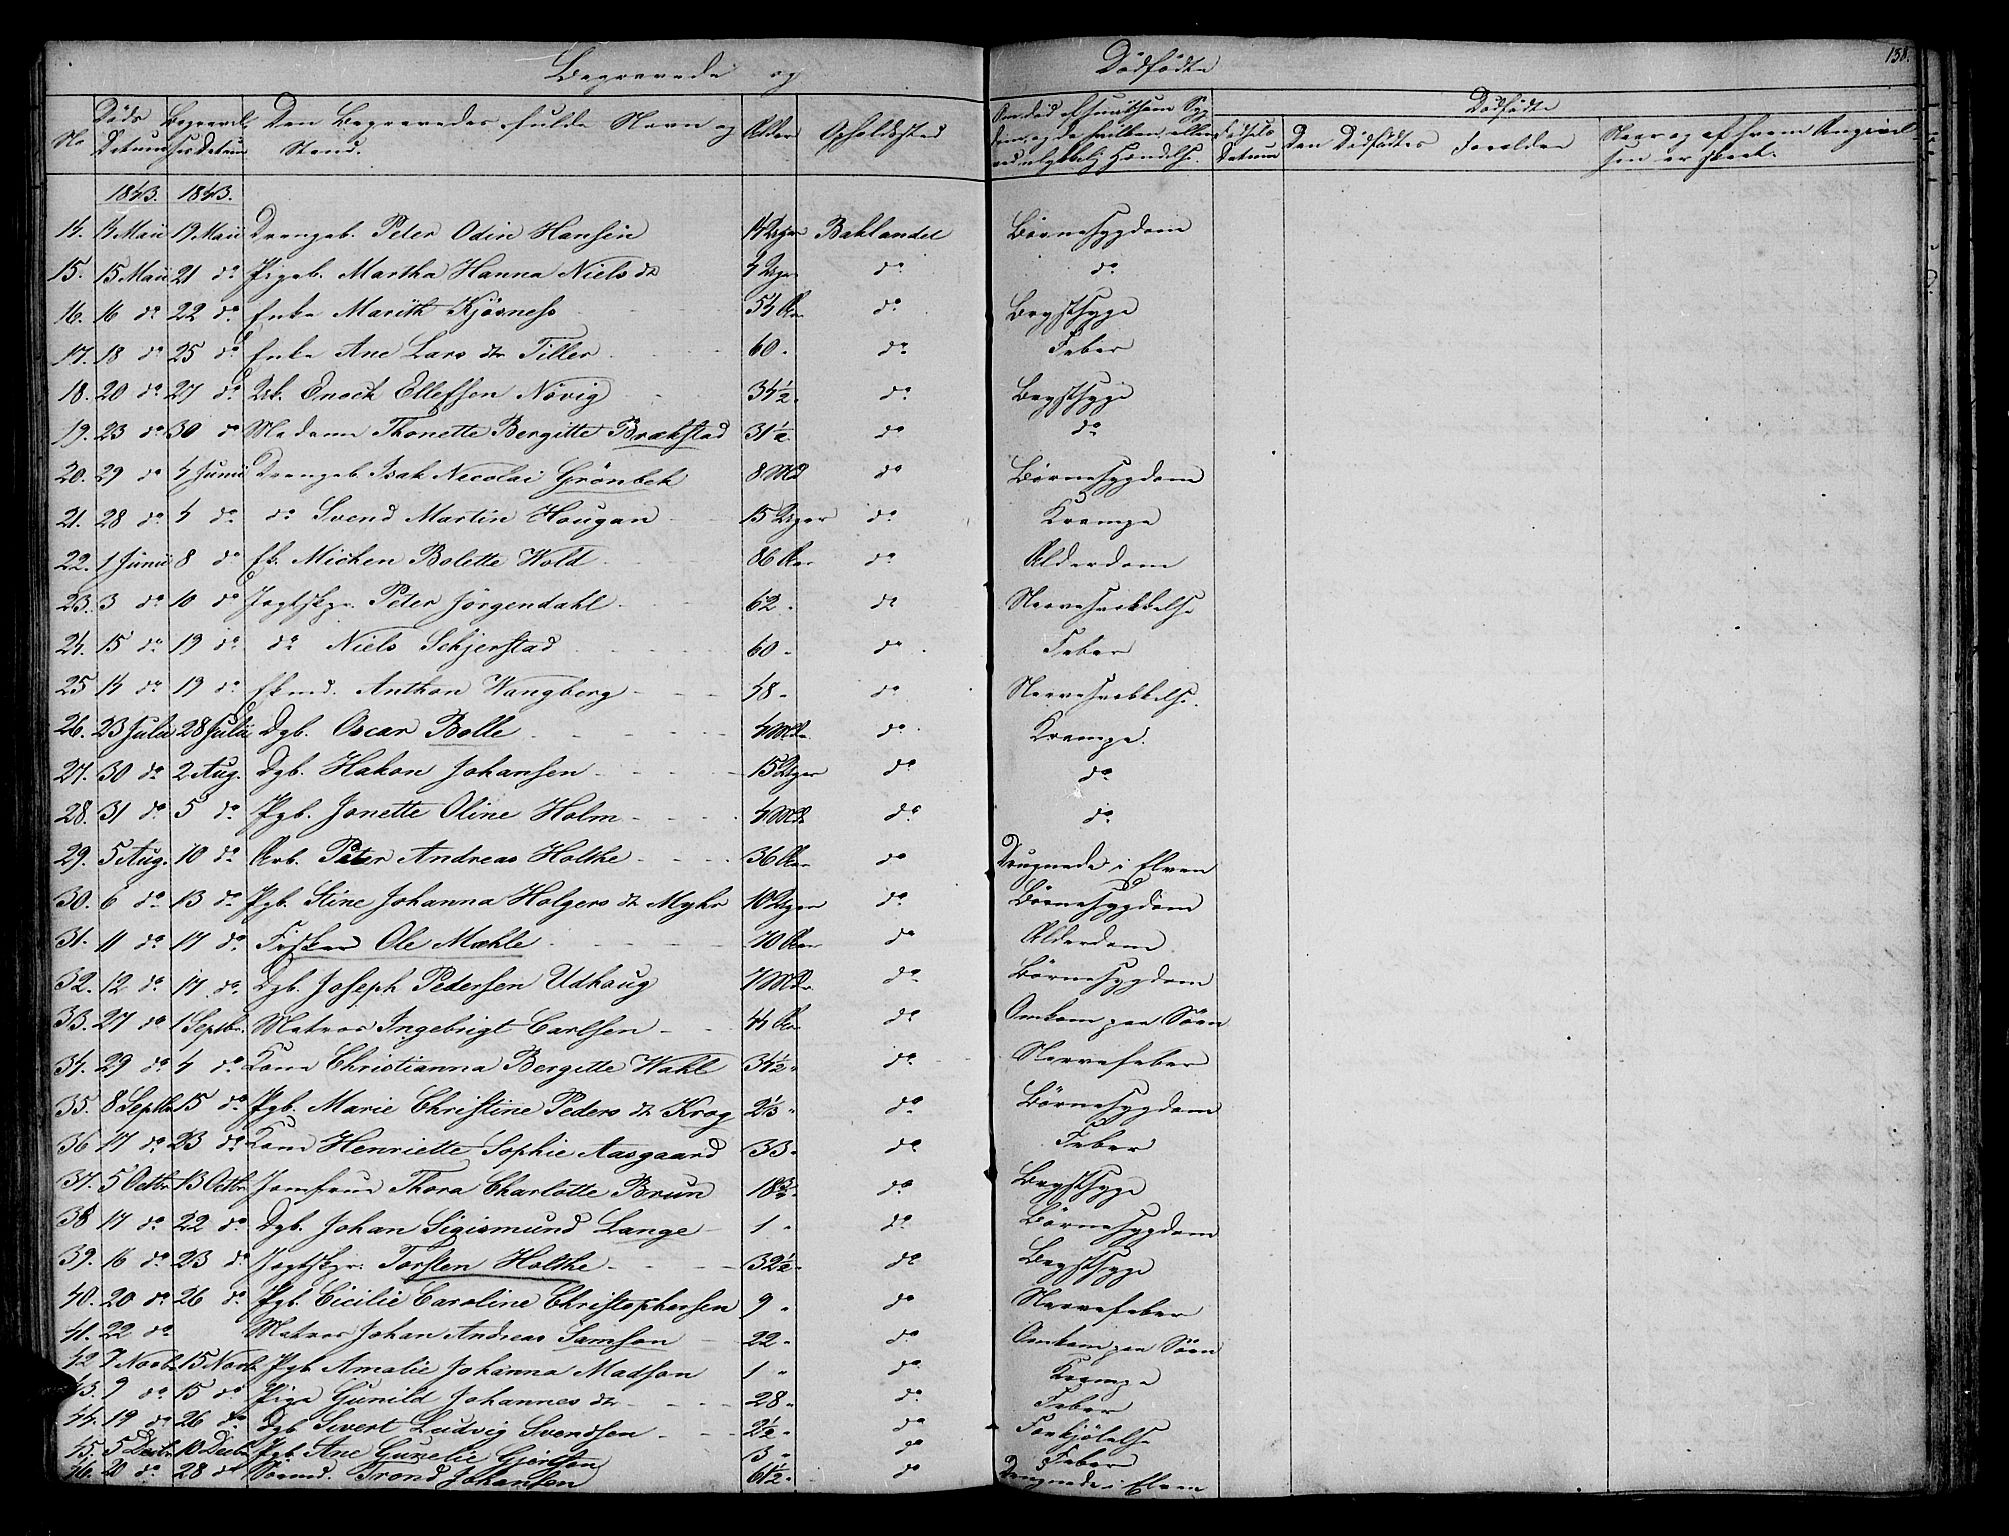 Begravede og Dødfødte 138.
No Døds Datum Begravelsesdatum Den Begravedes fulde Navn og Stand. Alder Opholdssted Dødfødte
Fødsels Datum Den Dødfødtes Forældre
1843. 1843.
14. 14 Maii 19 Maii Drengeb. Peter Odin Hansen 14 Dage Baklandet Børnesygdom
15. 15 Maii 21 do Pigeb. Martha Hanna Niels dr do do
16. 16 do 22 do Enke Marith Kjösness 54 Aar do Brystsyge
17. 18 do 25 do Enke Ane Lars dr Tiller 60 do Feber
18. 20 do 27 do Enoch Ellefsen Növig 34½ do Brystsyge
19. 23 do 30 do Madame Thonette Bergitte Brækstad 31½ do do
20. 29 do 4 Junii Drengeb. Isak Nicolai Grönbech 8 Md do Børnesygdom
21. 28 do 4 do do Svend Martin Hougan 15 Uger do Krampe
22. 1 Junii 8 do Ek. Michen Bolette Wold 86 Aar do Alderdom
23. 3 do 10 do Jagtskpr. Peter Jörgendahl 62 do Nervesvækkelse
24. 15 do 19 do do Niels Schjerstad 60 do Feber
25 14 do 19 do Ekmd. Anthon Wangberg 48 do Nervesvækkelse.
26. 23 Julii 28 Julii Dgb. Oscar Bolle 4 Mdr do Krampe.
27. 30 do 2 Aug. Dgb. Hakon Johansen 15 Uger do do
28. 31 do 5 do Pgb. Jonette Oline Holm 4 Mdr do do
29. 5 Aug. 10 do Arb. Peter Andreas Holthe 36 Aar do Drugnede i Elven
30. 6 do 13 do Pgb. Stine Johanna Holgers dr Myhr 10 Uger do Børnesygdom
31. 11 do 17 do Fisker Ole Mæhle 70 Aar do Alderdom
32. 12 do 17 do Dgb. Joseph Pedersen Udhoug 7 Mdr do Børnesygdom
33. 27 do 1 Septbr. Matros Ingebrigt Carlsen 44 Aar do Omkom paa Søen
34. 29 do 4 do Kone Christianna Bergitte Wahl 34½ do Nervefeber
35. 8 Septbr 15 do Pgb. Marie Christine Peders dr Krog 2⅓ do Børnesygdom
36 17 do 23 do Kone Henriette Sophie Aasgaard 33 do Feber
37. 5 Octbr 13 Octbr Jomfrue Thora Charlotte Brun do Brystsyge
38 17 do 22 do Dgb. Johan Sigismund Lange 1 do Börnesygdom
39. 16 do 23 do Jagtskpr. Torsten Holthe 32½ do Brystsyge
40. 20 do 26 do Pgb. Cicilie Caroline Christophersen 9 do Nervefeber
41. 22 do Matros Johan Andreas Samson 22 do Omkom paa Søen
42 7 Novbr 15 Novbr Pgb Amalie Johanna Madson 1 do Krampe
43. 9 do 15 do Pige Gunild Johannes dr 28 do Feber
44. 19 do 26 do Dgb Sivert Ludvig Svendsen 2½ do Forkjölelse
45. 5 Decbr 10 Decbr Pgb. Ane Gurelie Gjertson 3 do Feber
46. 20 do 28 do Trond Johansen 61½ do Drugnede i Elven